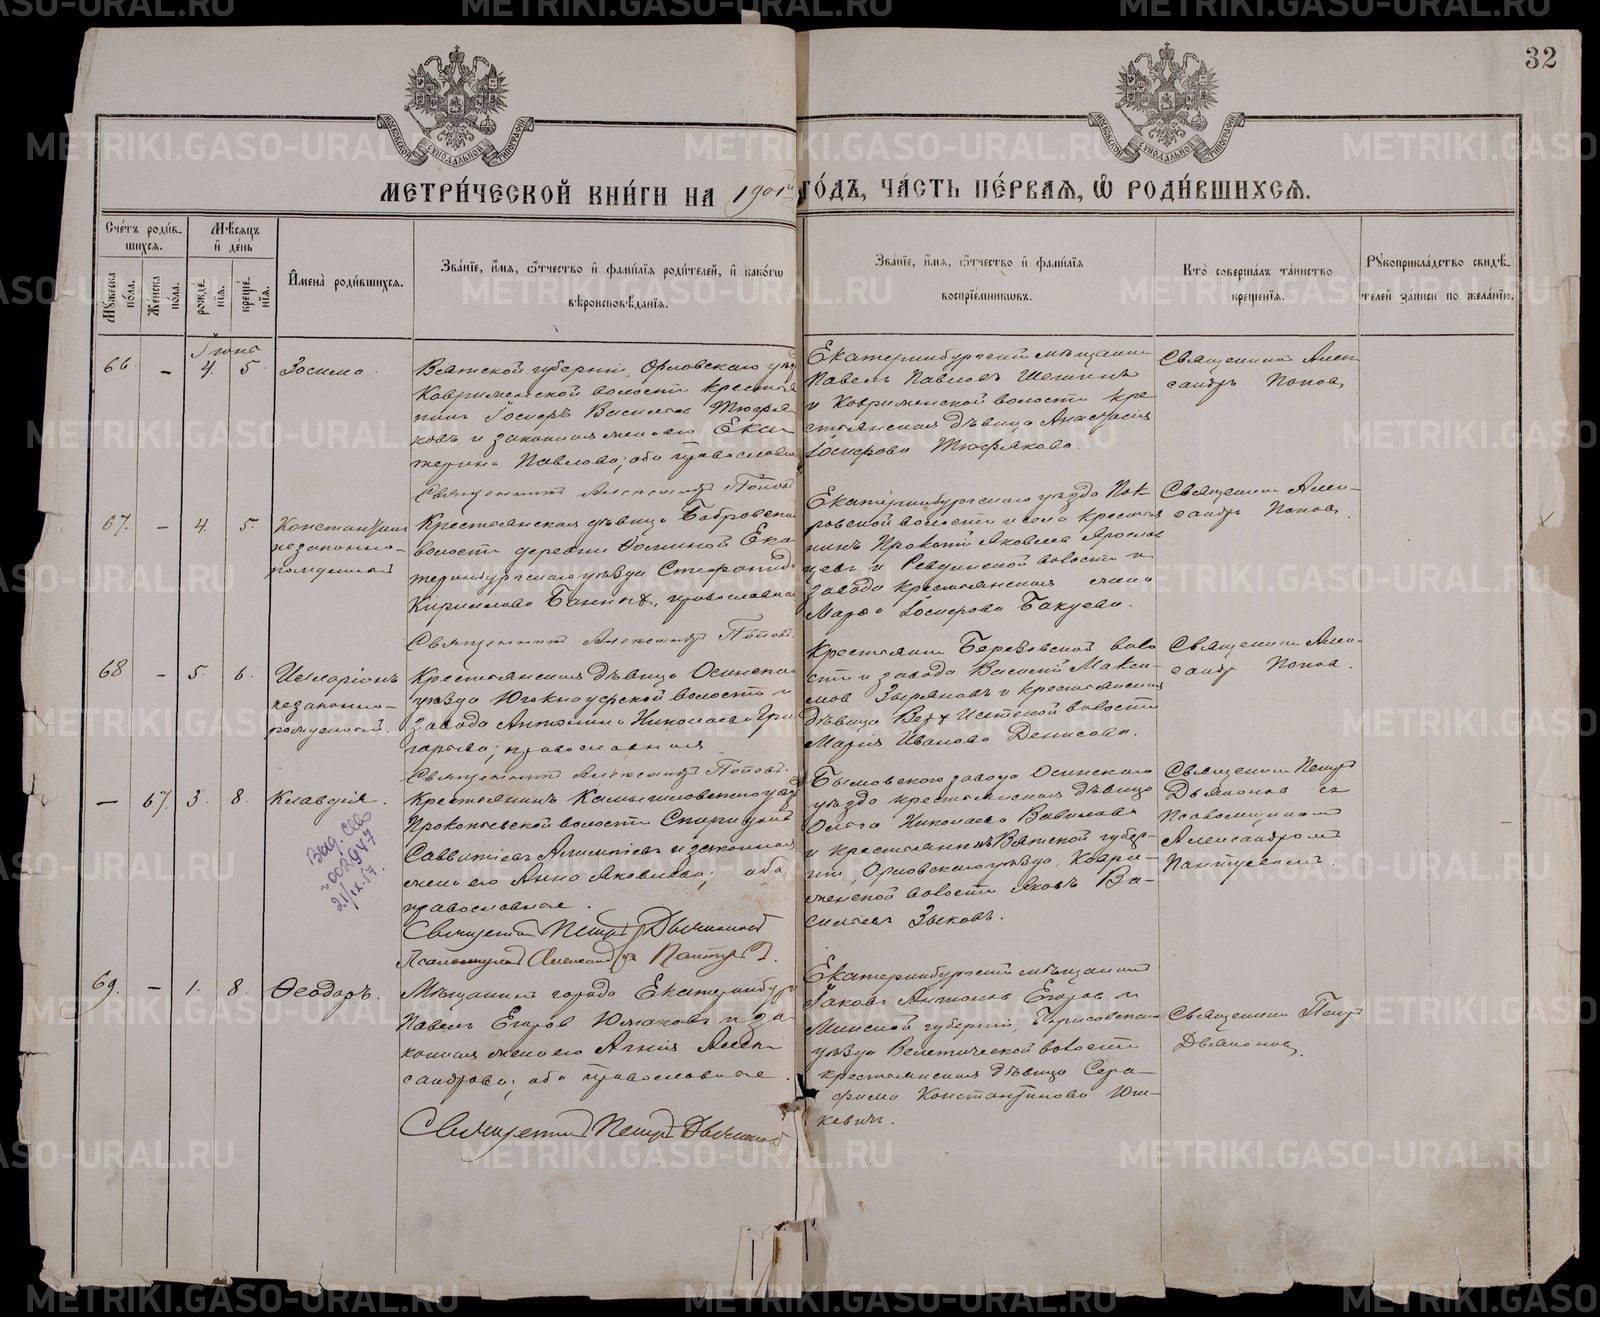 32
МОСКОВСКОЙ СѴНОДАЛЬНОЙ ТИПОГРАФІИ
МОСКОВСКОЙ СѴНОДАЛЬНОЙ ТИПОГРАФІИ
МЕТРИ́ЧЕСКОЙ КНИ́ГИ НА 1901й ГО́ДЪ, ЧА́СТЬ ПЕ́РВАЯ, Ѡ҆ РОДИ́ВШИХСЯ.
Сче́тъ роди́в-
шихся.
Мѹ́жеска по́ла.
Же́нска по́ла.
Мѣ́сяцъ
и҆ де́нь
рожде́-
нїѧ.
креще́-
нїѧ.
И҆мена̀ роди́вшихся.
Зва́нїе, и҆́мѧ, ѻ҆́тчество и҆ фами́лїѧ роди́телей, и҆ како́гѡ
вѣроисповѣ́данїѧ.
Зва́нїе, и҆́мѧ, ѻ҆́тчество и҆ фами́лїѧ
воспрїе́мникѡвъ.
Кто̀ соверша́лъ та́инство
креще́нїѧ.
Рѹкоприкла́дство свидѣ́-
телей за́писи по жела́нїю.
Іюнь
66. - 4. 5. Зосима.
Вятской губерніи, Орловскаго уѣзд
Ковриженской волости крестья
нинъ Іосифъ Васильевъ Тюфя
ковъ и законная жена его Ека-
терина Павлова; оба православн
Священникъ Александръ Поповъ
Екатеринбургскій мѣщанинъ
Павелъ Павловъ
и Ковриженской волости кре
стьянская дѣвица Анастасія
Іосифова Тюфякова.
Священникъ Алек
сандръ Поповъ
67. - 4. 5. Константинъ
незаконно-
рожденный
Крестьянская дѣвица Бобровской
волости деревни Ека
теринбургскаго уѣзда Стефанида
Кириллова православная
Священникъ Александръ Поповъ.
Екатеринбургскаго уѣзда Пок
ровской волости и села крестья
нинъ Прокопій Яковлевъ Ярослав
цевъ и Ревдинской волости и
завода крестьянская жена
Марѳа Іосифова Бакуева.
Священникъ Алек-
сандръ Поповъ.
68 - 5. 6. Илларіонъ
незаконно-
рожденный.
Крестьянская дѣвица Осинска
уѣзда Югокнауфской волости и
завода Антонина Николаева Гри
горьева; православная
Священникъ Александръ Поповъ.
Крестьянинъ Березовской воло
сти и завода Василій Макси-
мовъ Зыряновъ и крестьянская
дѣвица Верх Исетской волости
Марія Иванова Денисова.
Священникъ Алек-
сандръ Поповъ.
— 67. 3. 8. Клавдія.
Выд. Св
002947
21/IX-57.
Крестьянинъ Камышловскаго уѣзд
Прокопьевской волости Спиридонъ
Савватіевъ и законная
жена его Анна Яковлева; оба
православные.
Священникъ Петръ Дьяконовъ
Псаломщикъ Александръ Пантуевъ.
Бымовскаго завода Осинскаго
уѣзда крестьянская дѣвица
Ольга Николаева Вавилова
и крестьянинъ Вятской губер-
ніи, Орловскаго уѣзда, Коври-
женской волости Яковъ Ва-
сильевъ Зыковъ.
Священникъ Петръ
Дьяконовъ съ
Псаломщикомъ
Александромъ
Пантуевымъ.
69. - 1. 8. Ѳеодоръ.
Мѣщанинъ города Екатеринбург
Павелъ Егоровъ Южаковъ и за-
конная жена его Агнія Алек-
сандрова; оба православные.
Священникъ Петръ Дьяконовъ
Екатеринбургскій мѣщанинъ
Іаковъ Антоновъ Егоровъ и
Минской губерніи, Борисовскаго
уѣзда волости
крестьянская дѣвица Сера-
фима Константинова Юш-
кевичъ.
Священникъ Петръ
Дьяконовъ.
METRIKI.GASO-URAL.RU